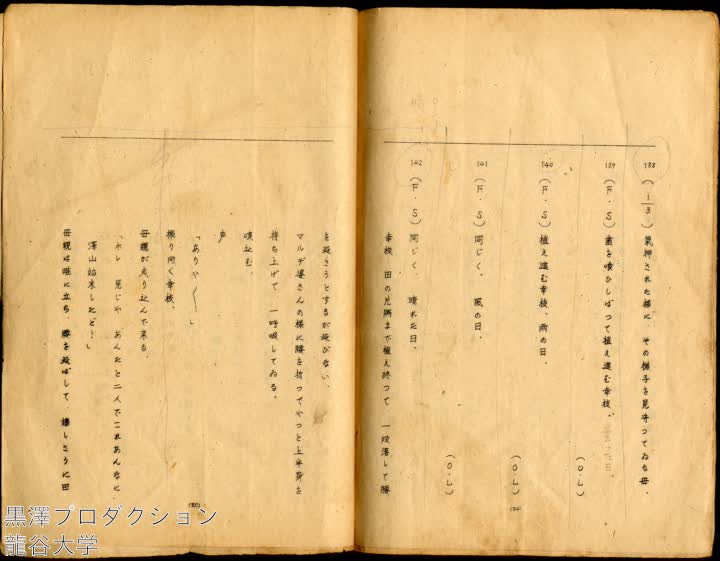 138 (1/3) 気押された様に、その様子を見守つてゐる母。
139 (F・S) 歯を喰ひしばつて植え進む幸枝。
(O・L)
140 (F・S) 植え進む幸枝、雨の日。
(O・L)
141 (F・S) 同じく、風の日。
(O・L)
142 (F・S) 同じく、晴れた日。
幸枝、田の片隅まで植え終つて、一段落して腰
を延さうとするが延びない、
マルデ婆さんの様に腰を折つてやつと上半身を
持ち上げて、一呼吸してゐる。
咳込む。
声
「ありや〱」
振り向く幸枝。
母親が走り込んで来る。
「ホレ 見じや あんたと二人でこれあんなに、
澤山始末したど！」
母親は畦に立ち、腰を延ばして、嬉しさうに田
黒澤プロダクション
龍谷大学